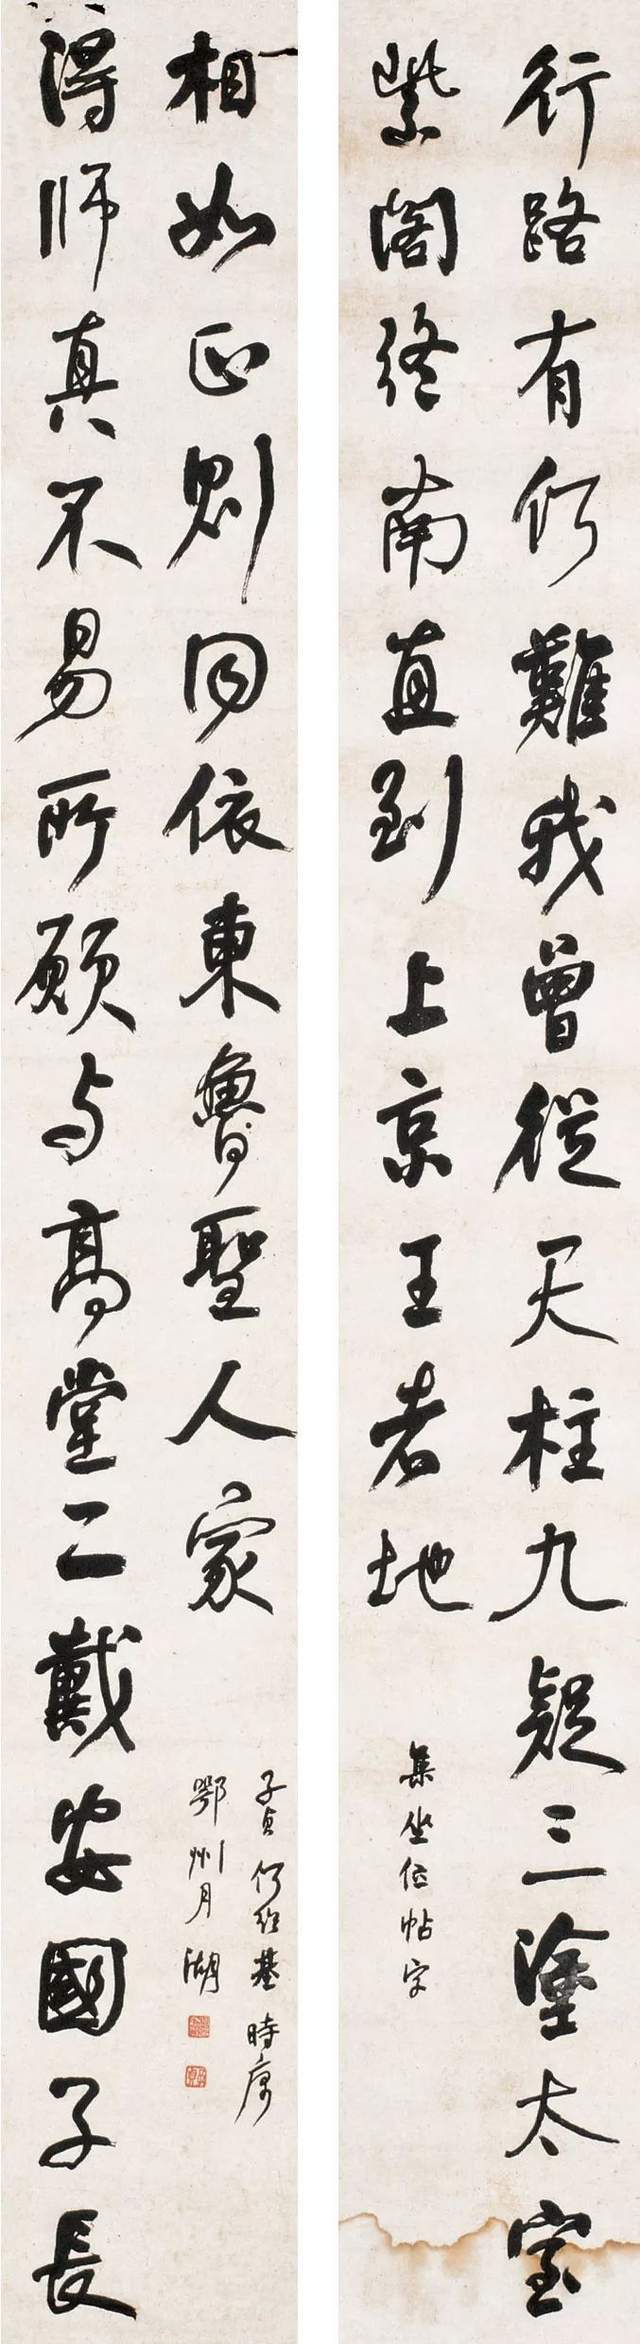 行路有何難我曾從天柱九疑三塗太室
紫閣終南直到上京王者地
集坐位帖字
得師真不易所願与高堂二戴安國子長
相如正則同依東魯聖人家
子貞何紹基時寓
鄂州月湖